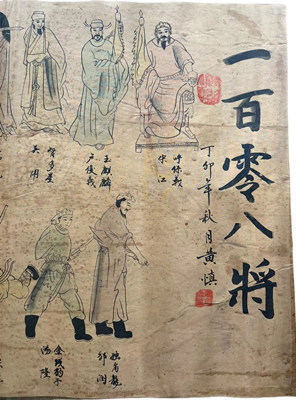 一百零八将
丁卯年秋月黄慎
呼保义
宋江
玉麒麟
卢俊义
智多星
吴用
独角龙
邹润
金钱豹子
汤隆